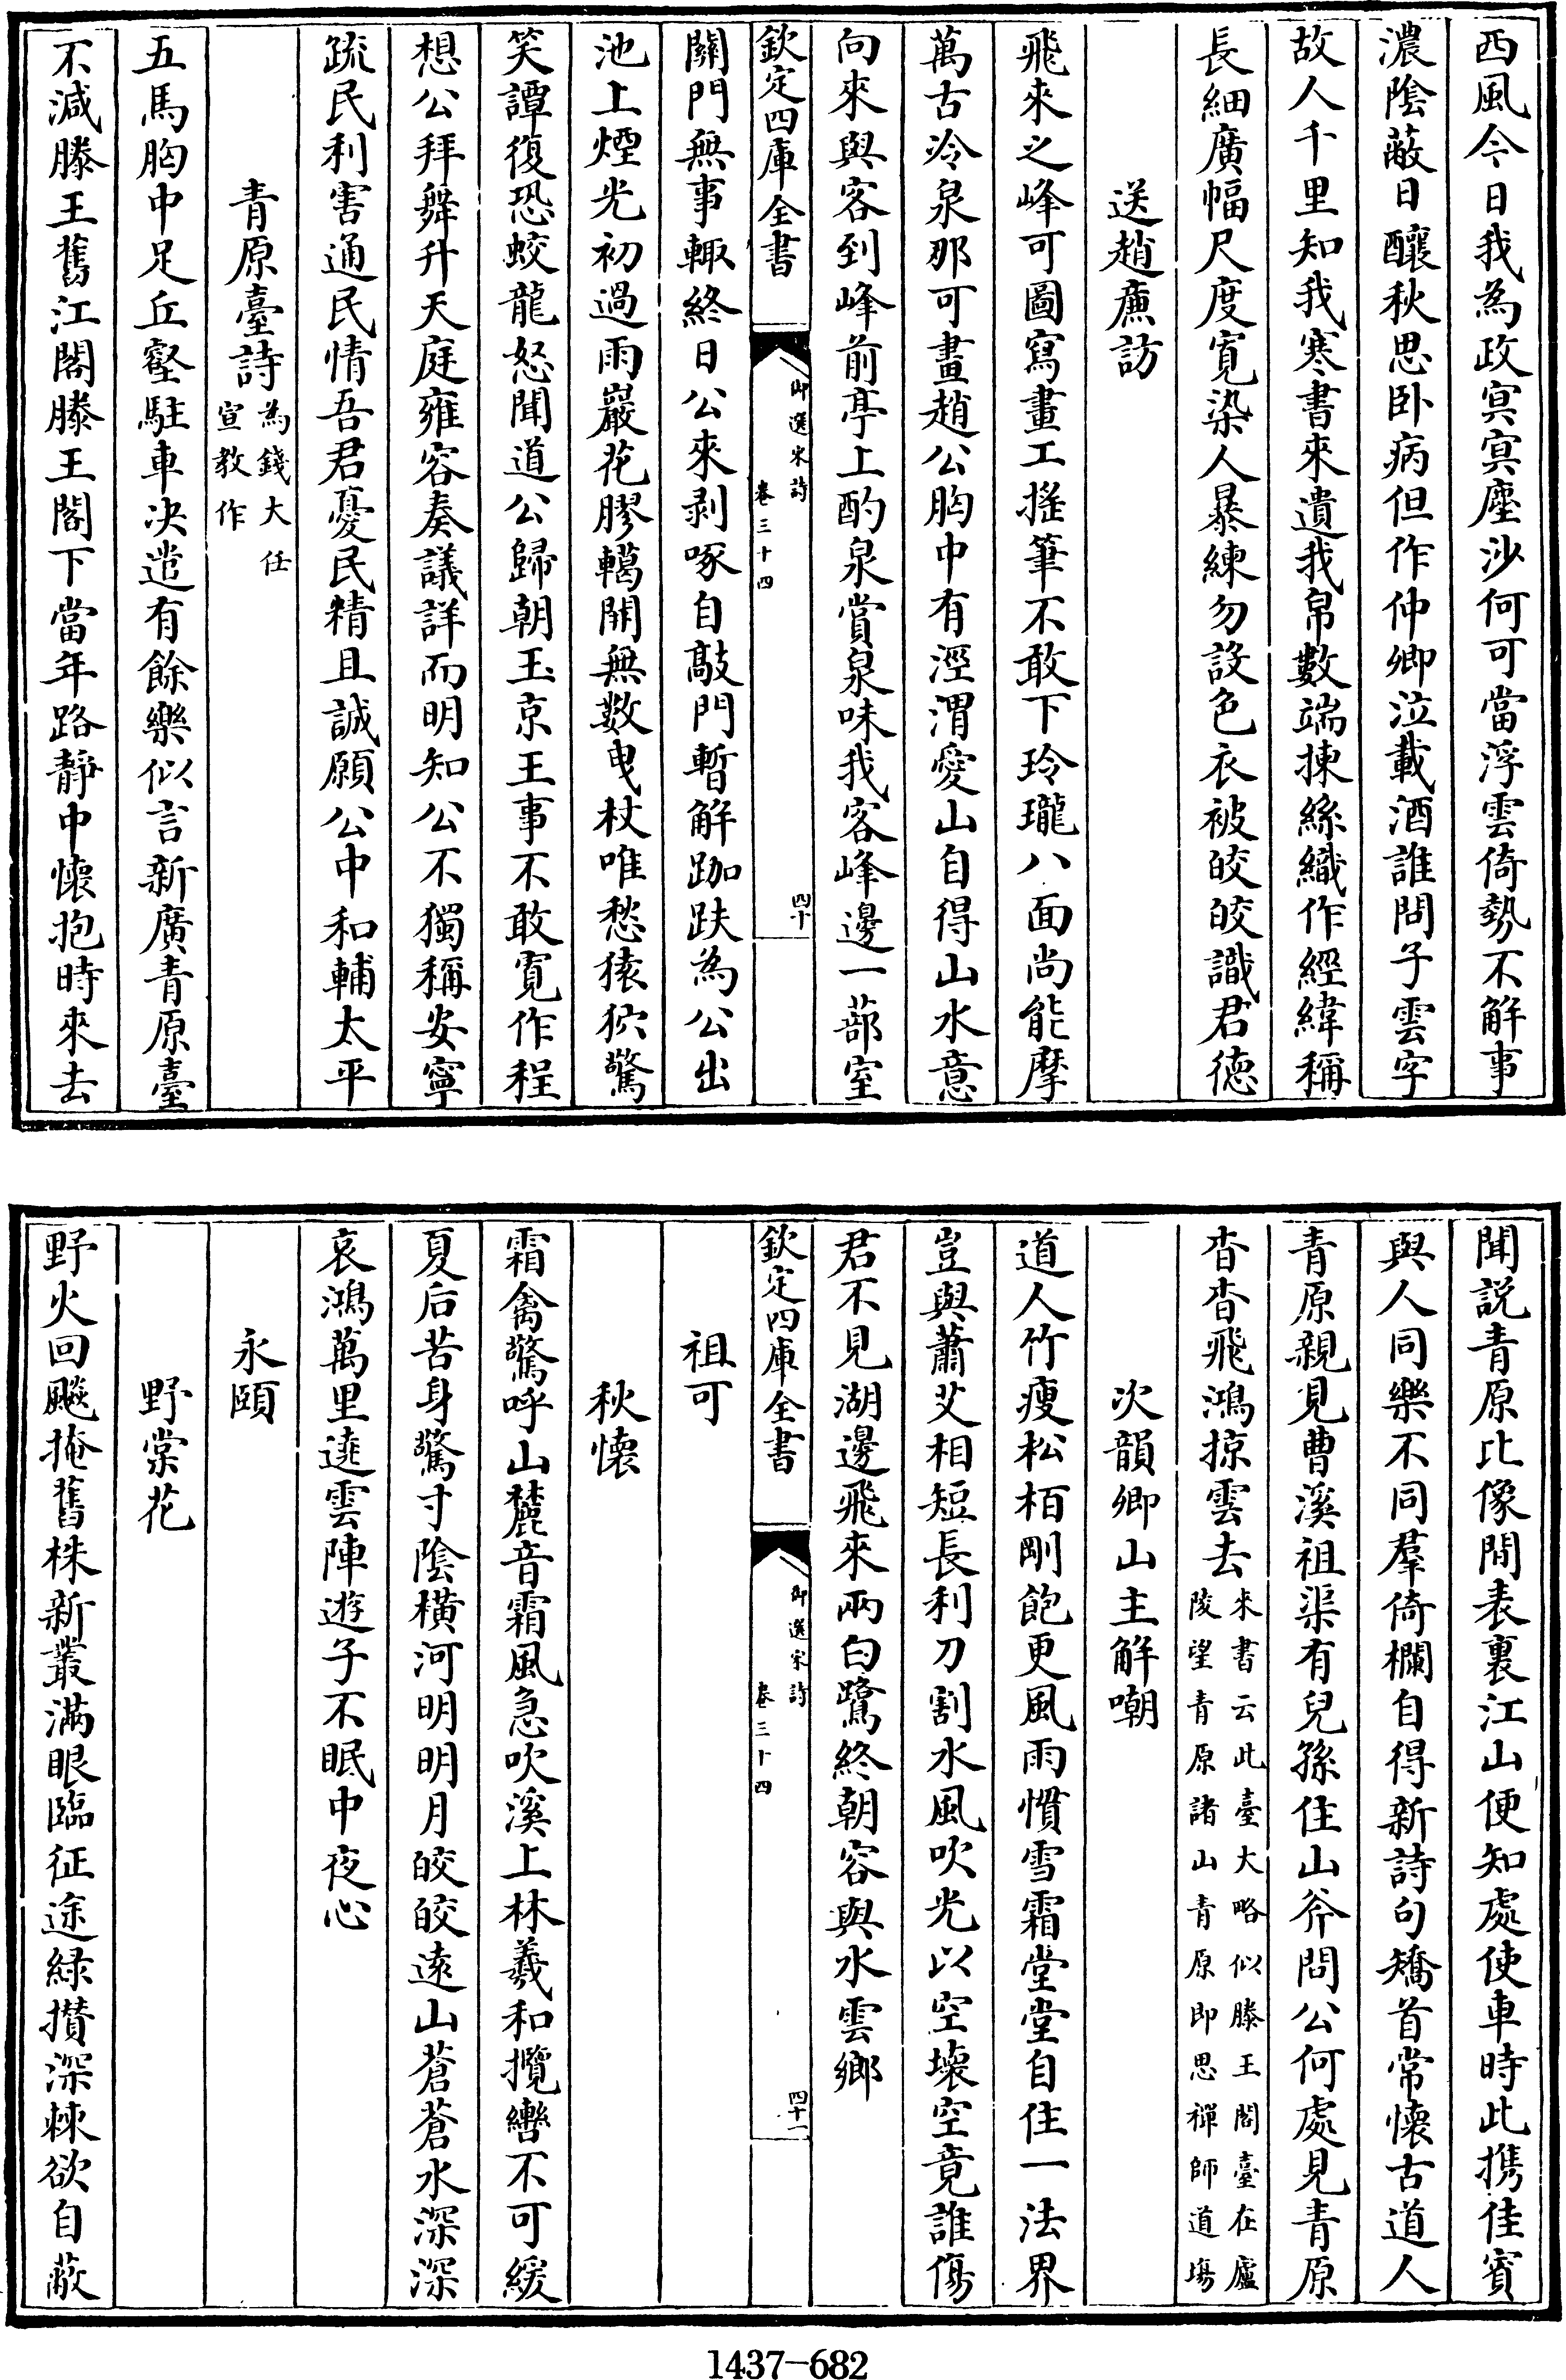 西風今日我為政冥冥塵沙何可當浮雲倚勢不解事
濃陰蔽日釀秋思卧病但作仲卿泣載酒誰問子雲字
故人千里知我寒書來遺我帛數端揀絲織作經緯稱
長細廣幅尺度寛染人暴練勿設色衣被皎皎識君徳
送趙㢘訪
飛來之峰可圖寫畫工搖筆不敢下玲瓏八面尚能摩
萬古冷泉那可畫趙公胸中有涇渭愛山自得山水意
向來與客到峰前亭上酌泉賞泉味我客峰邊一蔀室
欽定四庫全書
御選宋詩
卷三十四
四十
關門無事輙終日公來剥啄自敲門暫解跏趺為公出
池上煙光初過雨巖花膠轕開無數曳杖唯愁猿狖驚
笑譚復恐蛟龍怒聞道公歸朝玉京王事不敢寛作程
想公拜舞升天庭雍容奏議詳而明知公不獨稱安寧
疏民利害通民情吾君憂民精且誠願公中和輔太平
青原臺詩為錢大任宣教作
五馬胸中足丘壑駐車决遣有餘樂似言新廣青原臺
不減滕王舊江閣滕王閣下當年路靜中懷抱時來去
聞説青原比像間表裏江山便知處使車時此擕佳賓
與人同樂不同羣倚欄自得新詩句矯首常懷古道人
青原親見曹溪祖渠有兒孫住山斧問公何處見青原
杳杳飛鴻掠雲去來書云此臺大略似滕王閣臺在廬陵望青原諸山青原即思禪師道塲
次韻卿山主解嘲
道人竹瘦松栢剛飽更風雨慣雪霜堂堂自住一法界
豈與蕭艾相短長利刀割水風吹光以空壞空竟誰傷
君不見湖邊飛來兩白鷺終朝容與水雲鄉
欽定四庫全書
御選宋詩
卷三十四
四十一
祖可
秋懷
霜禽驚呼山麓音霜風急吹溪上林羲和攬轡不可緩
夏后苦身驚寸陰横河明明月皎皎遠山蒼蒼水深深
哀鴻萬里遶雲陣遊子不眠中夜心
永頤
野棠花
野火回飈掩舊株新叢滿眼臨征途緑攅深棘欲自蔽
1437-682